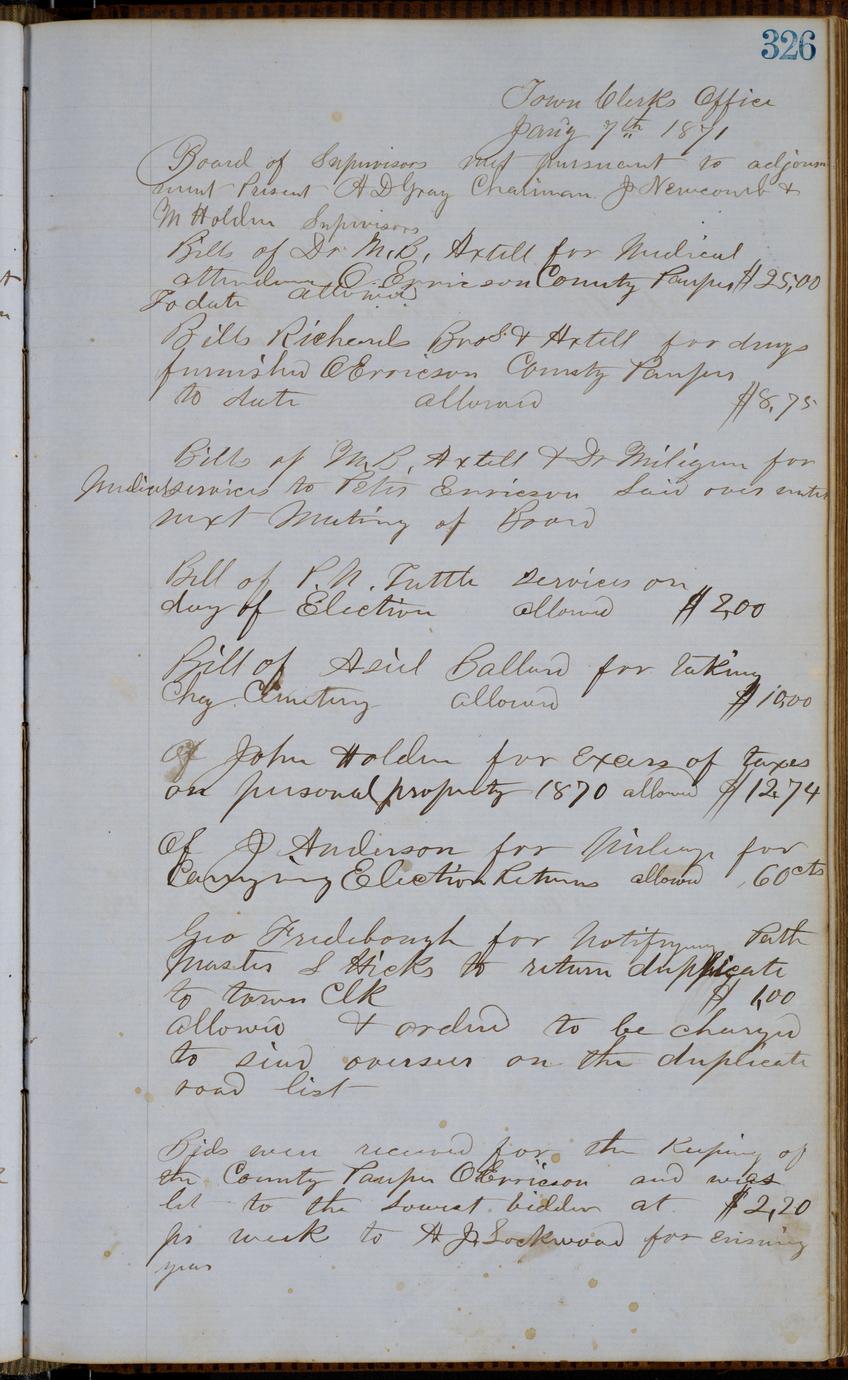 326
Town Clerks Office
Jan'y 7th 1871
Board of Supervisors met pursuant to adjourn
ment Present A D Gray Chairman J Newcomb &
M Holden Supervisors
Bills of Dr M.B. Axtell for Medical
attendance O. Erricson County Pauper $25,00
To date allowed
Bills Richards Bros & Axtell for drugs
furnished O Erricson County Paupers
to date allowed $8,75
Bills of M.B. Axtell & Dr Miligun for
Medical services to Peter Erricson Laid over until
next Meeting of Board
Bill of P.N. Tuttle Services on
day of Election allowed $2,00
Bill of Asiel Ballard for taking
Chg. Cemetery allowed $10,00
of John Holden for excess of taxes
on personal property 1870 allowed $12,74
Of J Anderson for Mileage for
Carrying Election Returns allowed ,60 cts
Geo Fridebough for Notifying Path
Master S Hicks to return duplicate
to town Clk $1,00
allowed & ordered to be charged
to said overseer on the duplicate
road list
Bids were received for the Keeping of
the County Pauper O Erricson and was
let to the Lowest bidder at $2,20
pr week to A J Lockwood for ensuing
year